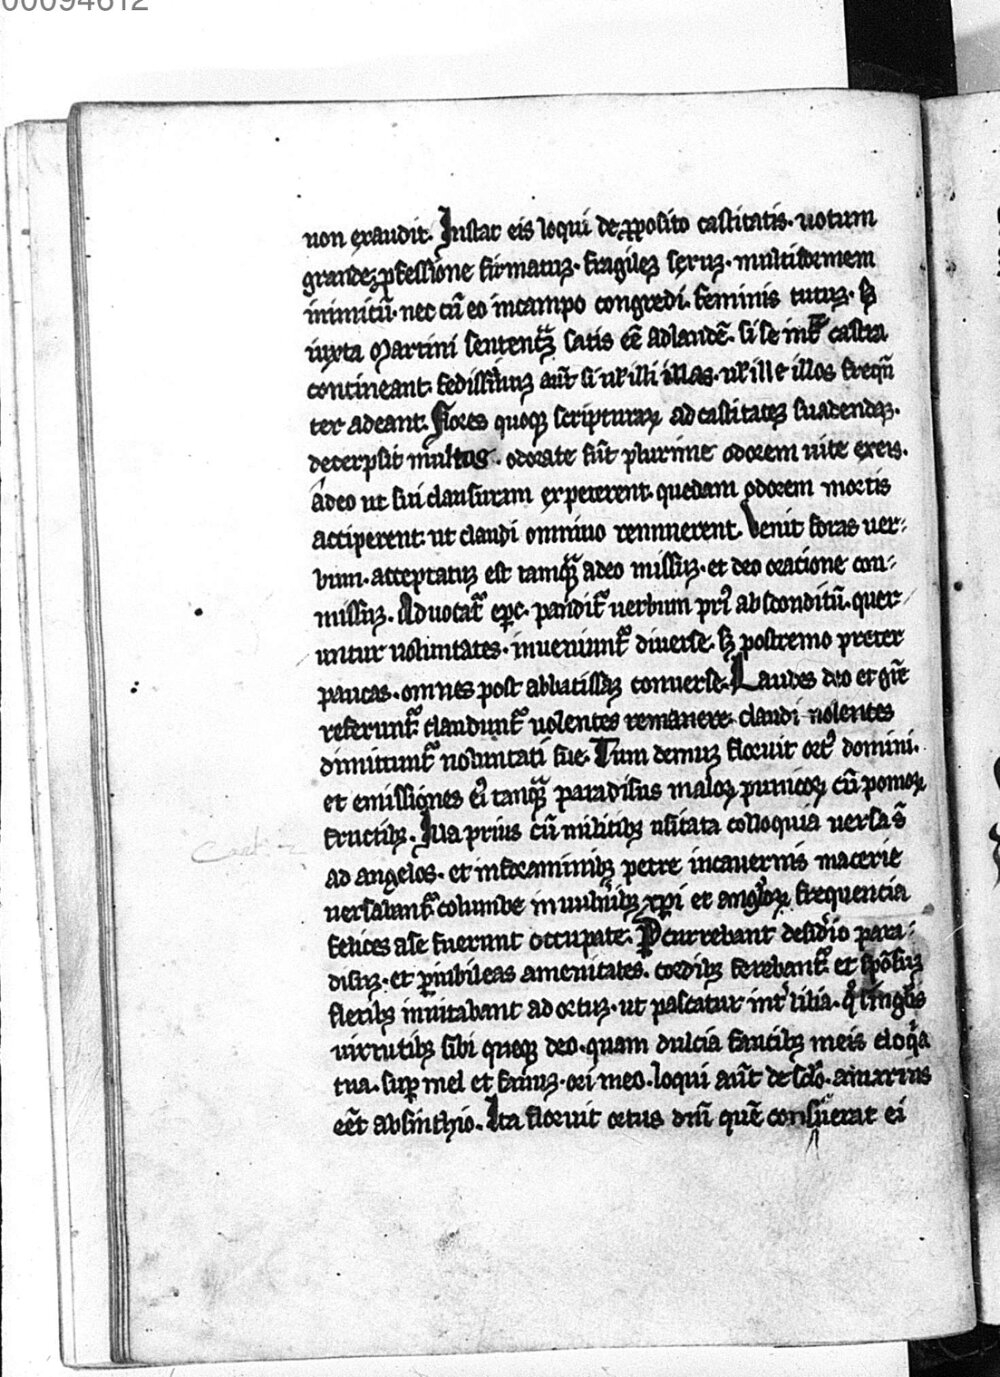 00094612
non exaudit. Instat eis loqui de ꝓposito castitatis. uotum
grandeꝫ ꝓfessione firmatuꝫ. fragileꝫ sexuꝫ. multiformem
inimicū. nec cū eo in campo congredi. feminis tutuꝫ. sꝫ
iuxta Martini sententiā satis eē ad laudē. si se inf͛ castra
contineant. fedissimuꝫ aūt si uł illi illas. uł ille illos freqn̄
ter adeant. Flores quoqꝫ scripturaꝝ ad castitateꝫ suadendaꝫ.
decerpsit multos. odorate sūt plurime odorem uite ex eis.
adeo ut sui clausuram expeterent. quedam odorem mortis
acciperent. ut claudi omnino rennuerent. Venit foras uer-
bum. acceptatuꝫ est tamqᷓꝫ a deo missuꝫ. et deo oratione con-
missuꝫ. Aduocat᷑ epc. pandit᷑ uerbum pri᷑ absconditū. quer-
untur uoluntates. inueniunt᷑ diuerse. sꝫ postremo preter
paucas. omnes post abbatissaꝫ conuerse. Laudes deo et gr̄e
referunt᷑. claudunt᷑ uolentes remanere. claudi nolentes
dimittunt᷑ uoluntati sue. Tum demuꝫ floruit ort᷒ domini.
et emissiones ei᷒ tanqᷓꝫ paradisus maloꝝ punicoꝝ cū pomoꝝ
fructibꝫ. Illa prius cū militibꝫ usitata colloquia uersa s̄
ad angelos. et in foraminibꝫ petre in cauernis macerie
uersabant᷑ columbe in uulnībꝫ xp̄i et angl̄oꝝ frequencia
felices aīe fuerunt occupate. Pcurrebant desid̄io para-
disuꝫ. et ꝑ iubileas amenitates. cordibꝫ ferebant᷑. et spōsuꝫ
fletibꝫ inuitabant ad ortuꝫ. ut pascatur int᷑ lilia. qͥ linguis
uirtutibꝫ sibi queqꝫ deo. quam dulcia faucibꝫ meis eloqͣ
tua. suꝑ mel et fauuꝫ. ori meo. loqui aūt de sc̄lo. amarius
eēt absinthio. Ita floruit ortus dn̄i quē conseuerat ei